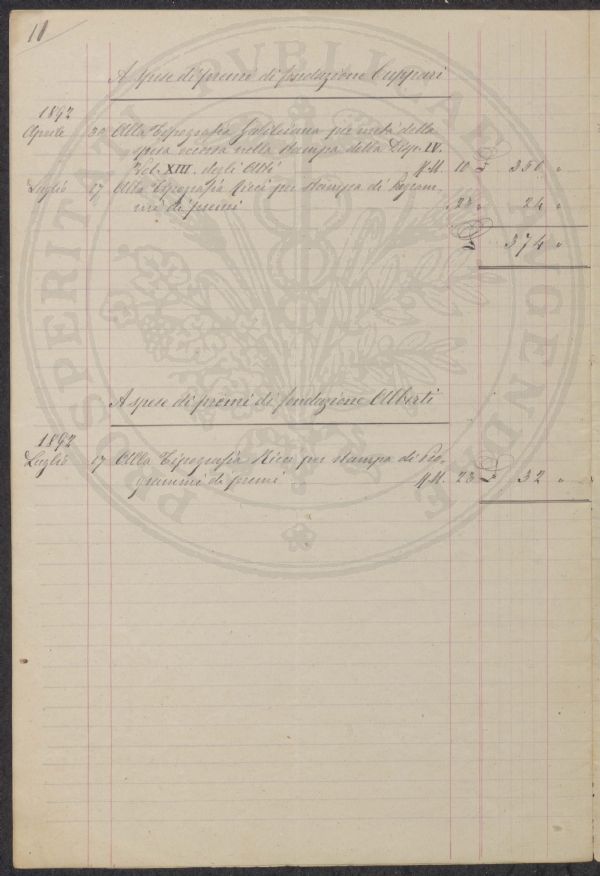 11
A spese di premi di fondazione Cuppari
1892
Aprile 30 Alla Tipografia Galileiana per metà della
spesa occorsa nella stampa della Disp. IV.
Vol. XIII. degli Atti M.M. 10 £ 350 "
Luglio 17 Alla Tipografia Ricci per stampa di Program-
mi di premi " 23 " 24 "
£ 374 "
A spese di premi di fondazione Alberti
1892
Luglio 17 Alla Tipografia Ricci per stampa di Pro-
grammi di premi M.M. 23 £ 32 "
PROSPERITATI PVBLICAE AVGENDAE